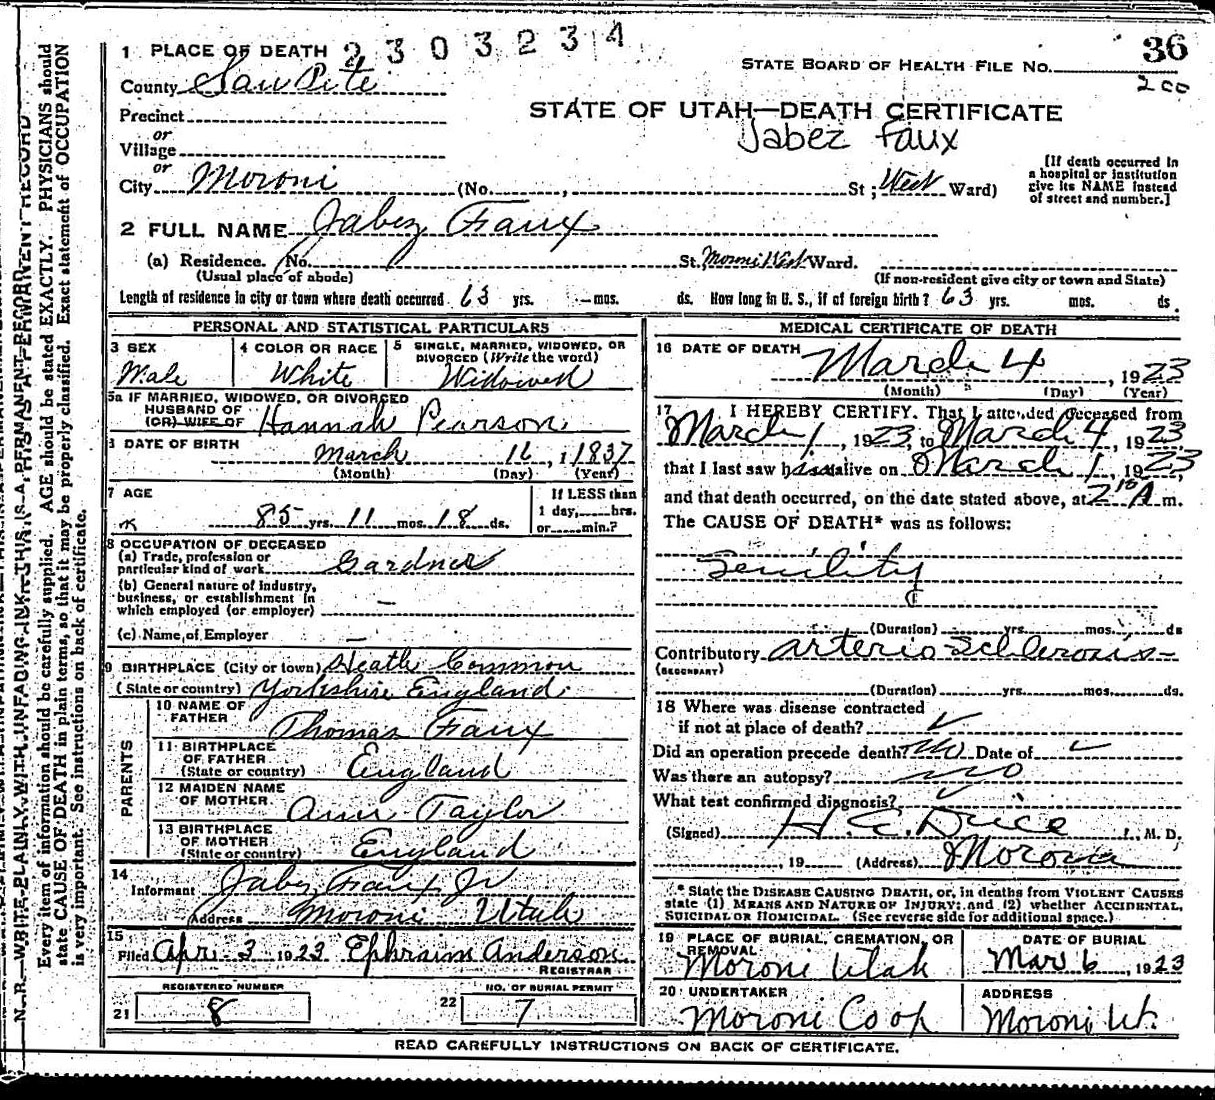 1 PLACE OF DEATH 2303234
STATE BOARD OF HEALTH FILE NO. 36
200
County San Pete
STATE OF UTAH—DEATH CERTIFICATE
Precinct
Jabez Faux
or
Village
or
City Moroni (No. , St ; West Ward)
[If death occurred in
a hospital or institution
give its NAME instead
of street and number.]
2 FULL NAME Jabez Faux
(a) Residence. No. St. Moroni West Ward.
(Usual place of abode) (If non-resident give city or town and State)
Length of residence in city or town where death occurred 63 yrs. — mos. ds. How long in U. S., if of foreign birth? 63 yrs. mos. ds.
PERSONAL AND STATISTICAL PARTICULARS
3 SEX
Male
4 COLOR OR RACE
White
5 SINGLE, MARRIED, WIDOWED, OR
DIVORCED (Write the word)
Widowed
5a IF MARRIED, WIDOWED, OR DIVORCED
HUSBAND OF
(OR) WIFE OF Hannah Pearson
DATE OF BIRTH
March 16, 1 1837
(Month) (Day) (Year)
7 AGE
85 yrs. 11 mos. 18 ds.
If LESS than
1 day, hrs.
or min.?
8 OCCUPATION OF DECEASED
(a) Trade, profession or
particular kind of work Gardner
(b) General nature of industry,
business, or establishment in
which employed (or employer) —
(c) Name of Employer —
9 BIRTHPLACE (City or town) Heath Common
(State or country) Yorkshire England
PARENTS
10 NAME OF
FATHER Thomas Faux
11 BIRTHPLACE
OF FATHER
(State or country) England
12 MAIDEN NAME
OF MOTHER Ann Taylor
13 BIRTHPLACE
OF MOTHER
(State or country) England
14
Informant Jabez Faux Jr
Address Moroni Utah
15
Filed Apr. 3 1923 Ephraim Anderson
REGISTRAR
REGISTERED NUMBER
21 8
NO. OF BURIAL PERMIT
22 7
MEDICAL CERTIFICATE OF DEATH
16 DATE OF DEATH March 4, 1923
(Month) (Day) (Year)
17 I HEREBY CERTIFY, That I attended deceased from
March 1, 1923, to March 4, 1923
that I last saw him alive on March 1, 1923
and that death occurred, on the date stated above, at 2 10 A m.
The CAUSE OF DEATH* was as follows:
Senility
(Duration) yrs. mos. ds
Contributory Arterio Schlerosis
(SECONDARY)
(Duration) yrs. mos. ds.
18 Where was disease contracted
if not at place of death?
Did an operation precede death? No Date of
Was there an autopsy? No
What test confirmed diagnosis?
(Signed) , M. D.
, 19 (Address)
* State the DISEASE CAUSING DEATH, or, in deaths from VIOLENT CAUSES
state (1) MEANS AND NATURE OF INJURY; and (2) whether ACCIDENTAL,
SUICIDAL OR HOMICIDAL. (See reverse side for additional space.)
19 PLACE OF BURIAL, CREMATION, OR
REMOVAL
Moroni Utah
DATE OF BURIAL
Mar 6, 1923
20 UNDERTAKER
Moroni Co op
ADDRESS
Moroni Ut.
READ CAREFULLY INSTRUCTIONS ON BACK OF CERTIFICATE.
N. B.—WRITE PLAINLY, WITH UNFADING INK—THIS IS A PERMANENT RECORD
Every item of information should be carefully supplied. AGE should be stated EXACTLY. PHYSICIANS should
state CAUSE OF DEATH in plain terms, so that it may be properly classified. Exact statement of OCCUPATION
is very important. See instructions on back of certificate.